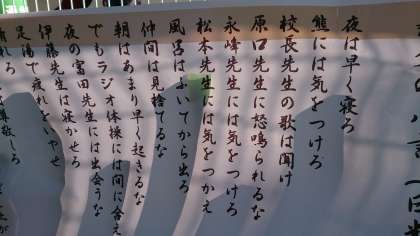 夜は早く寝ろ
熊には気をつけろ
校長先生の歌は聞け
原口先生に怒鳴られるな
永峰先生には気をつけろ
松本先生には気をつかえ
風呂はふいてから出ろ
仲間は見捨てるな
朝はあまり早く起きるな
でもラジオ体操には間に合え
夜の富田先生には出会うな
伊藤先生は寝かせろ
足湯で疲れをいやせ